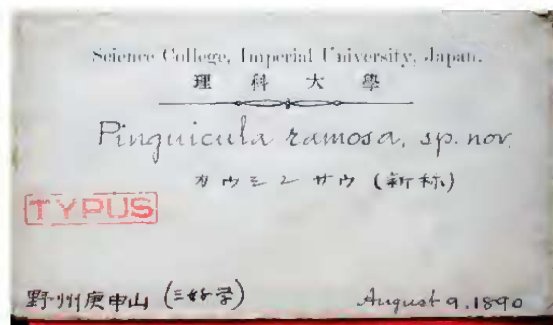 Science College, Imperial University, Japan.
理科大學
Pinguicula ramosa, sp. nov.
カウシンサウ (新称)
TYPUS
野州庚申山 (三好学) August 9. 1890